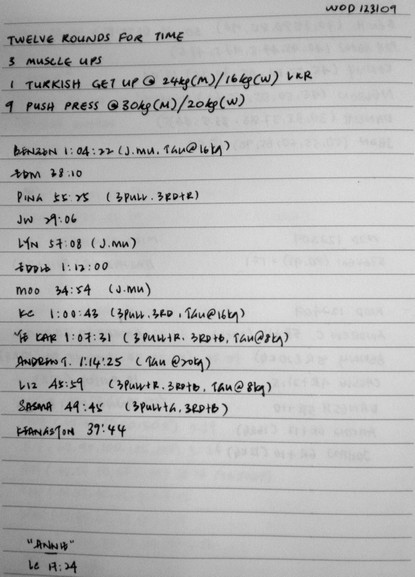 WOD 123109
TWELVE ROUNDS FOR TIME
3 MUSCLE UPS
1 TURKISH GET UP @ 24kg(M)/16kg(W) L&R
9 PUSH PRESS @ 30kg(M)/20kg(W)
BENZEN 1:04:22 (J.MU, TGU@16kg)
38:10
PINA 55:25 (3PULL.3RD+R)
JW 29:06
LYN 57:08 (J.MU)
EDDIE 1:12:00
MOO 34:54 (J.MU)
KC 1:00:43 (3PULL.3RD, TGU@16kg)
KAR 1:07:31 (3PULL+R. 3RD+B, TGU@8kg)
ANDREW T. 1:14:25 (TGU @20kg)
LIZ 45:59 (3PULL+R. 3RD+B, TGU@8kg)
49:45 (3PULL+G, 3RD+B)
39:44
"ANNIE"
LC 17:24